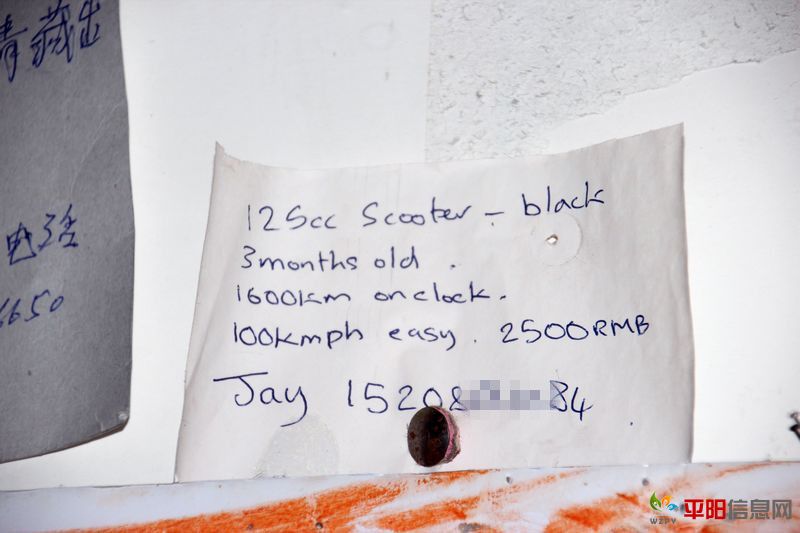 青藏出
电话
6650
125cc Scooter - black
3months old .
1600km on clock.
100kmph easy. 2500RMB
Jay 15208 84
平阳信息网
WZPY